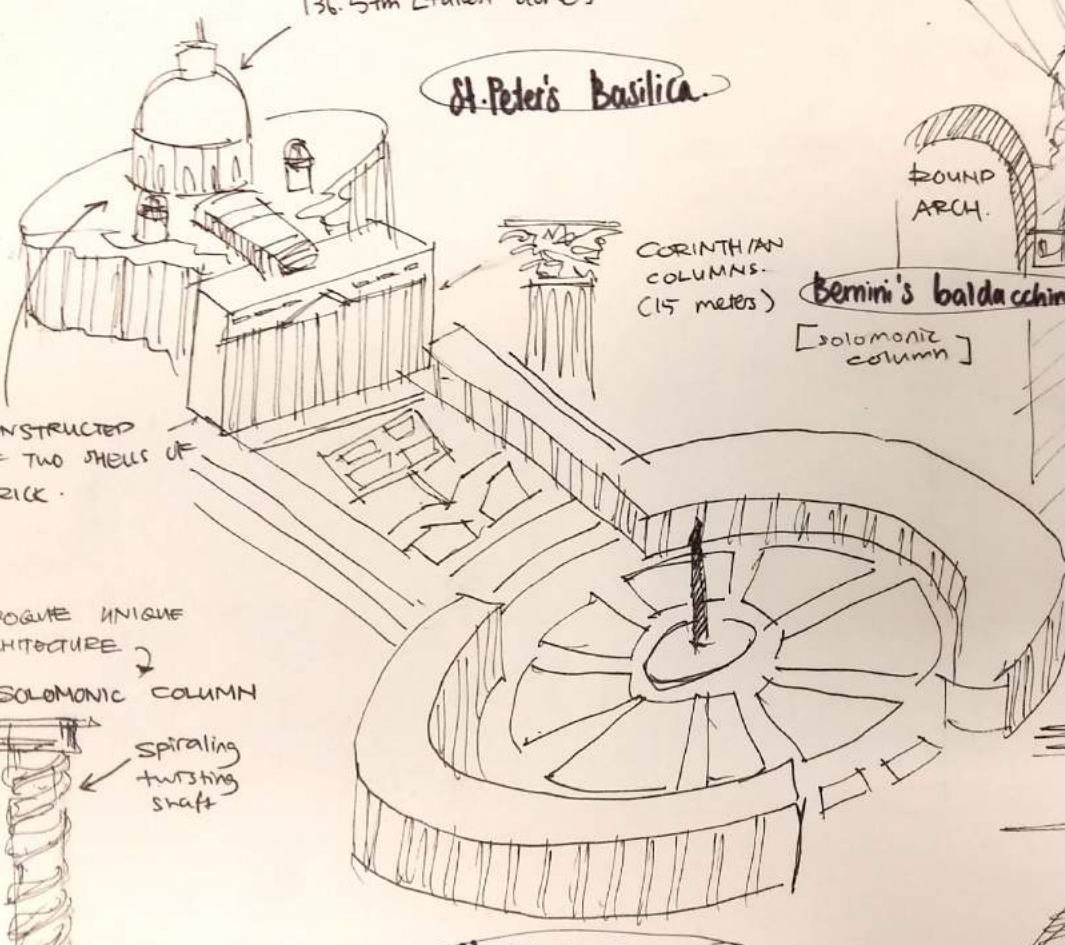 136.57m [tallest dome]
St. Peter's Basilica.
ROUND
ARCH.
CORINTHIAN
COLUMNS.
(15 meters)
Bernini's baldacchin
[solomonic
column]
NSTRUCTED
F TWO SHELLS OF
RICK.
ROQUE UNIQUE
CHITECTURE
SOLOMONIC COLUMN
spiraling
twisting
shaft